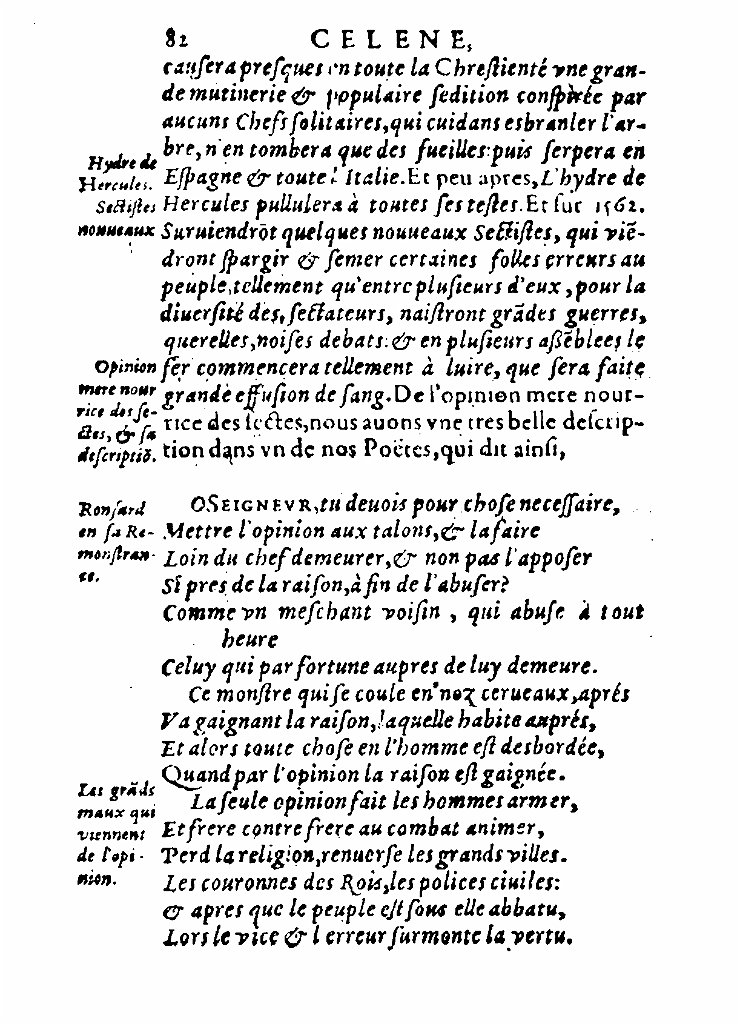 82 CELENE,
cauſera preſques en toute la Chreſtienté vne gran-
de mutinerie & populaire ſedition conſpirée par
aucuns Chefs ſolitaires, qui cuidans esbranler l'ar-
bre, n'en tombera que des fueilles: puis ſerpera en
Eſpagne & toute l'Italie. Et peu apres, L'hydre de
Hercules pullulera à toutes ſes teſtes. Et ſur 1562.
Suruiendrõt quelques nouueaux Sectiſtes, qui viẽ-
dront ſpargir & ſemer certaines folles erreurs au
peuple, tellement qu'entre pluſieurs d'eux, pour la
diuerſité des ſectateurs, naiſtront grãdes guerres,
querelles, noiſes debats: & en pluſieurs aſſẽblees le
fer commencera tellement à luire, que ſera faite
grande effuſion de ſang. De l'opinion mere nour-
rice des ſectes, nous auons vne tres belle deſcrip-
tion dans vn de nos Poëtes, qui dit ainſi,
Hydre de
Hercules.
Sectiſtes
nouueaux
Opinion
mere nour
rice des ſe-
ctes, & ſa
deſcriptiõ.
O SEIGNEVR, tu deuois pour choſe neceſſaire,
Mettre l'opinion aux talons, & la faire
Loin du chef demeurer, & non pas l'appoſer
Si pres de la raiſon, à fin de l'abuſer?
Comme vn meſchant voiſin, qui abuſe à tout
heure
Celuy qui par fortune aupres de luy demeure.
Ce monſtre qui ſe coule en noz cerueaux, aprés
Va gaignant la raiſon, laquelle habite auprés,
Et alors toute choſe en l'homme eſt desbordée,
Quand par l'opinion la raiſon eſt gaignée.
La ſeule opinion fait les hommes armer,
Et frere contre frere au combat animer,
Perd la religion, renuerſe les grands villes.
Les couronnes des Rois, les polices ciuiles:
& apres que le peuple eſt ſous elle abbatu,
Lors le vice & l'erreur ſurmonte la vertu.
Ronſard
en ſa Re-
monſtran-
ce.
Les grãds
maux qui
viennent
de l'opi-
nion.